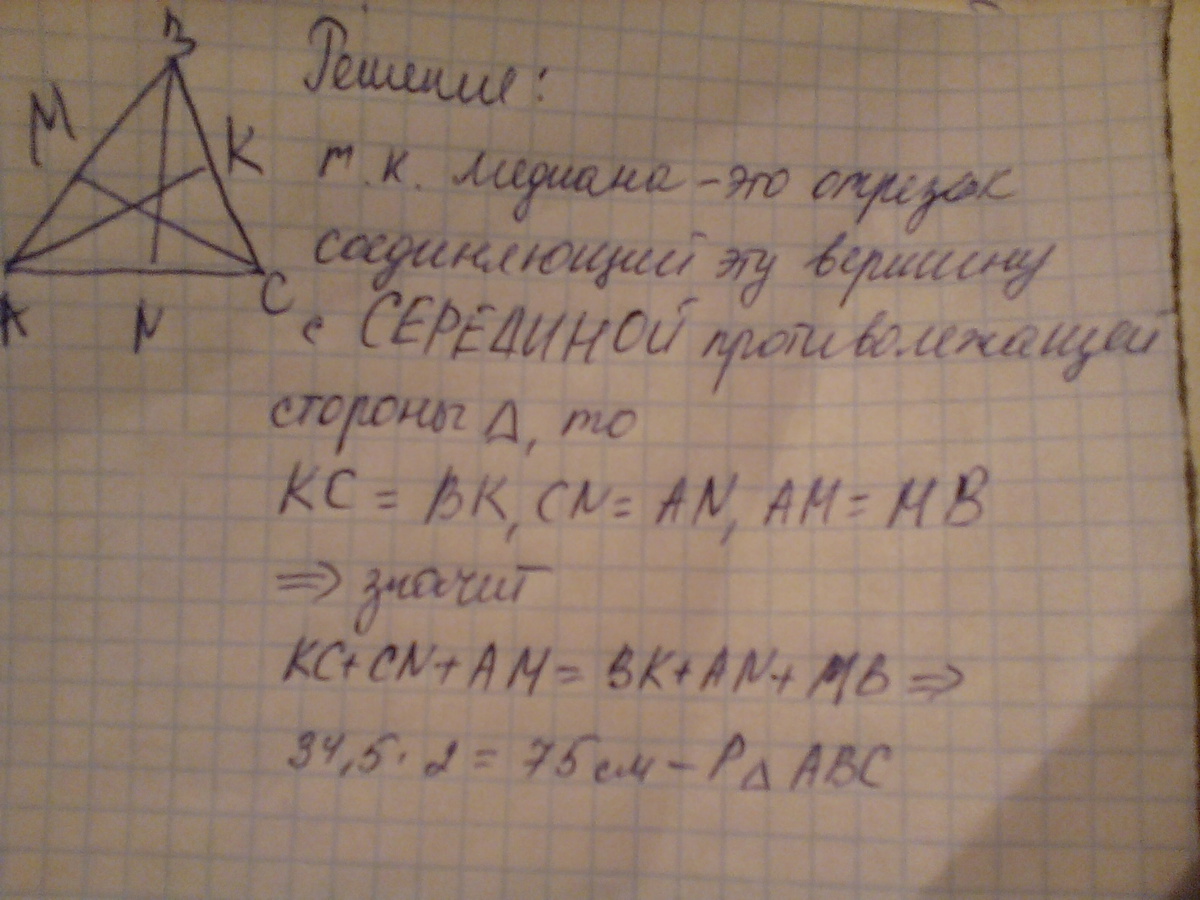 В
М
К
А
N
С
Решение:
т.к. медиана - это отрезок
соединяющий эту вершину
с СЕРЕДИНОЙ противолежащей
стороны Δ, то
KC = BK, CN = AN, AM = MB
=> значит
KC + CN + AM = BK + AN + MB =>
34,5 · 2 = 75 см - P Δ ABC